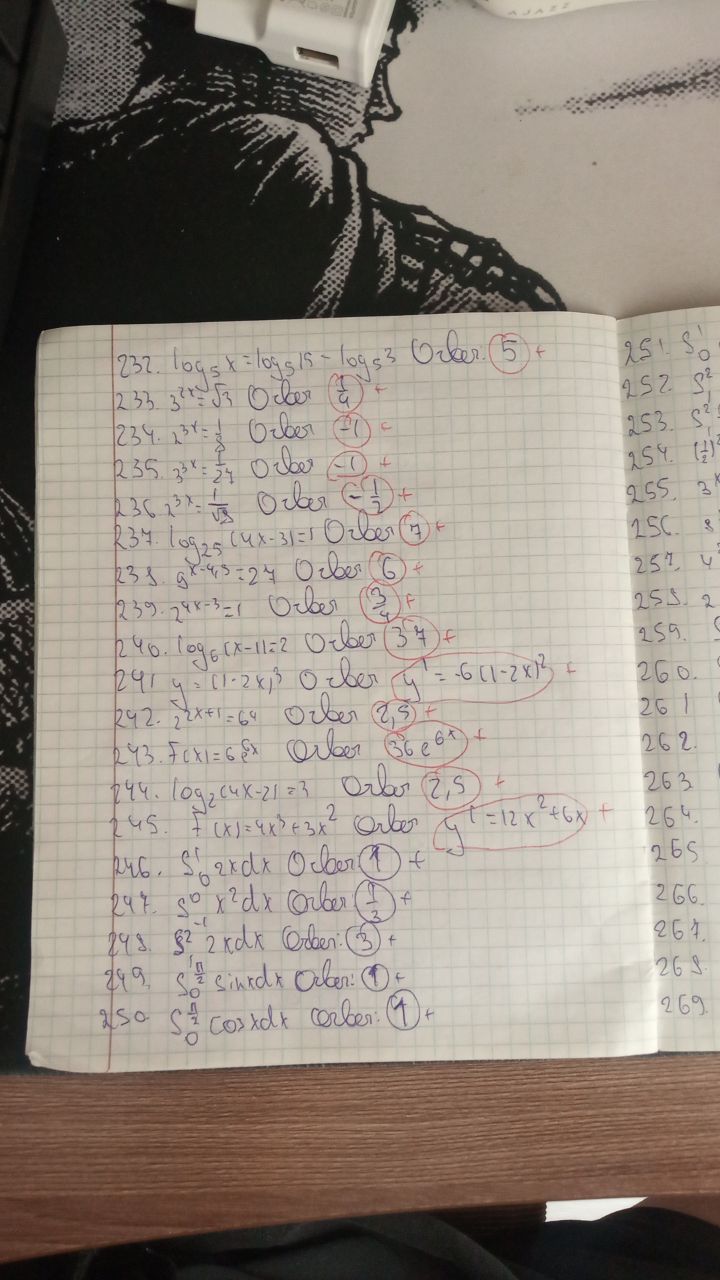 AJAZZ
232. log₅ x = log₅ 15 - log₅ 3 Ответ. 5 +
233. 3²ˣ = √3 Ответ 1/4 +
234. 2³ˣ = 1/8 Ответ -1 +
235. 3³ˣ = 1/27 Ответ -1 +
236. 2³ˣ = 1/√8 Ответ -1/2 +
237. log₂₅ (4x-3)=1 Ответ 7 +
238. 9ˣ⁻⁴,⁵ = 27 Ответ 6 +
239. 2⁴ˣ⁻³ = 1 Ответ 3/4 +
240. log₆ (x-1)=2 Ответ 37 +
241 y = (1-2x)³ Ответ y' = -6(1-2x)² +
242. 2²ˣ⁺¹ = 64 Ответ 2,5 +
243. F(x)=6e⁶ˣ Ответ 36e⁶ˣ +
244. log₂(4x-2)=3 Ответ 2,5 +
245. F(x)=4x³+3x² Ответ y' =12x²+6x +
246. S₀¹ 2xdx Ответ 1 +
247. S₋₁⁰ x²dx Ответ 1/3 +
248. S₁² 2xdx Ответ: 3 +
249. S₀^π/2 sinxdx Ответ: 1 +
250. S₀^π/2 cosxdx Ответ: 1 +
251. S₀¹
252. S²
253. S₁²
254. (1/2)
255. 3ˣ
256. 8
257. 4
258. 2
259.
260.
261
262.
263
264.
265
266.
267.
268.
269.